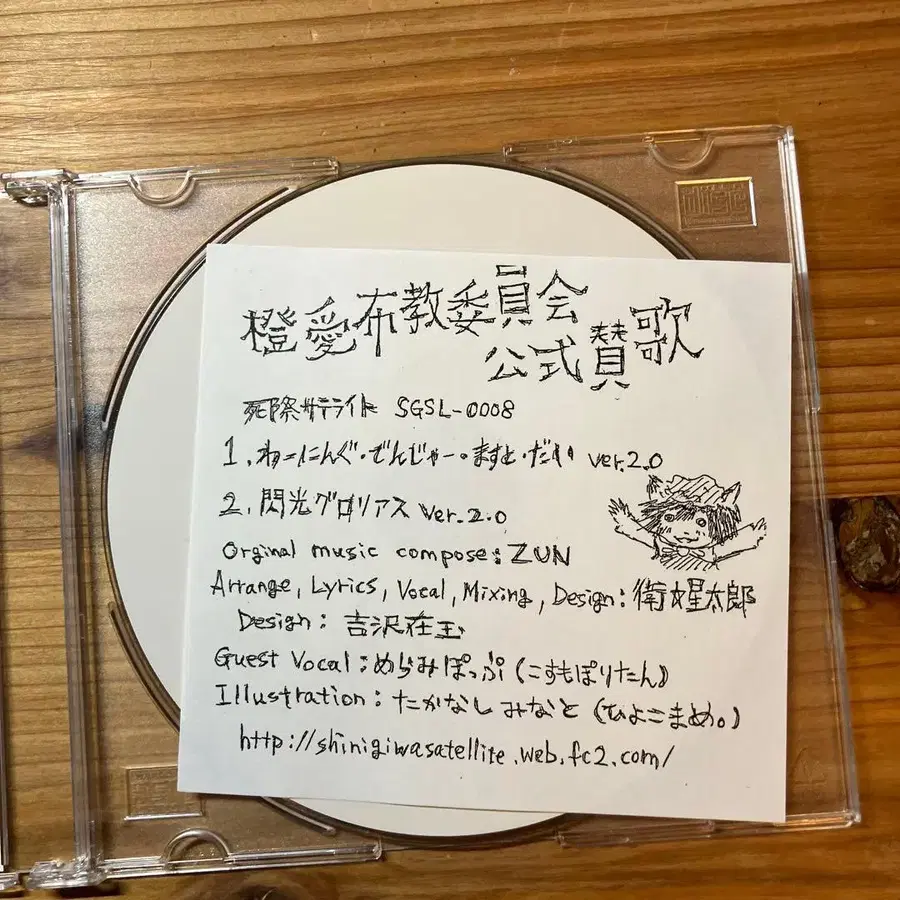 橙愛布教委員会
公式賛歌
死際サテライト SGSL-0008
1. わーにんぐ・でんじゃー・ますと・だい ver.2.0
2. 閃光グロリアス ver.2.0
Orginal music compose: ZUN
Arrange, Lyrics, Vocal, Mixing, Design: 衛女星太郎
Design: 吉沢在玉
Guest Vocal: めらみぽっぷ (こすもぽりたん)
Illustration: たかなしみなと (ひよこまめ。)
http://shinigiwasatellite.web.fc2.com/